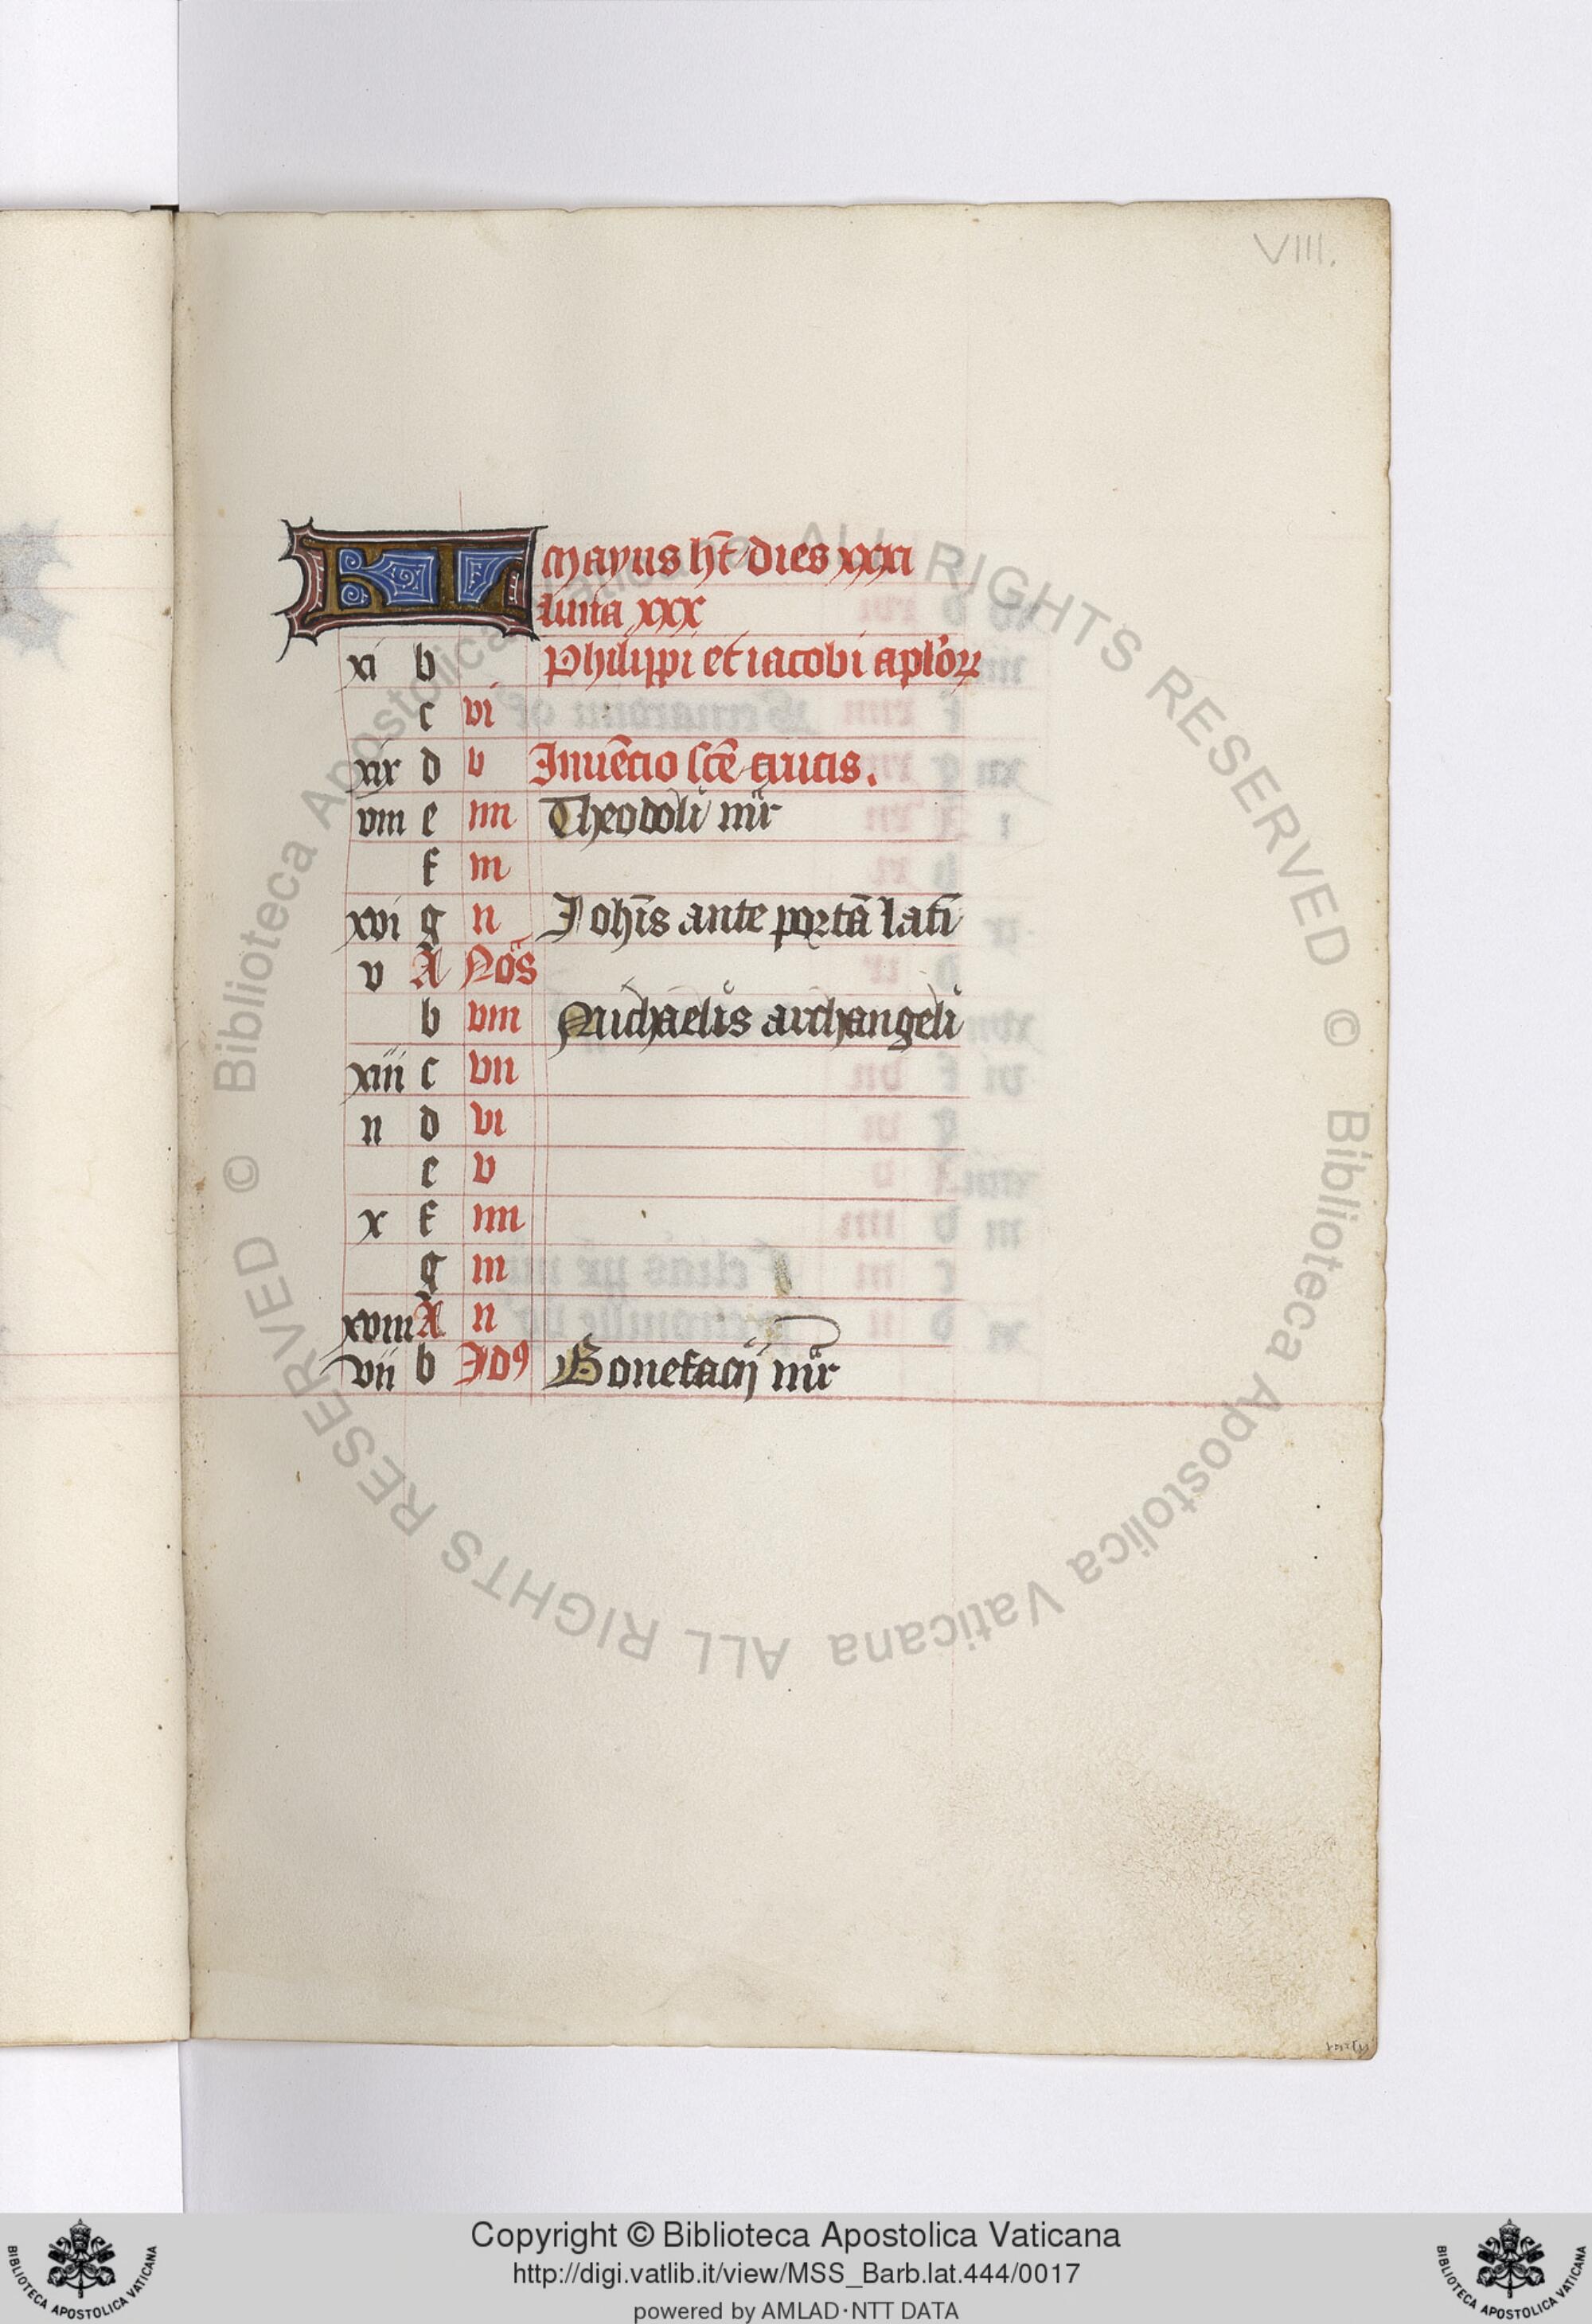 VIII.
KL Mayus hēt dies xxxi
luna xxx
xi b Philippi et iacobi aplōꝝ
c vi
xix d v Inuēcio scē crucis.
viii e iiii Theodoli mr̄
f iii
xvi g ii Johīs ante portā latī
v A Nōs
b viii Michaelis archangeli
xiii c vii
ii d vi
e v
x f iiii
g iii
xviii A ii
vii b Idꝰ Bonefacij mr̄
© Biblioteca Apostolica Vaticana ALL RIGHTS RESERVED © Biblioteca Apostolica Vaticana ALL RIGHTS RESERVED
Copyright © Biblioteca Apostolica Vaticana
http://digi.vatlib.it/view/MSS_Barb.lat.444/0017
powered by AMLAD·NTT DATA
BIBLIOTECA APOSTOLICA VATICANA
BIBLIOTECA APOSTOLICA VATICANA